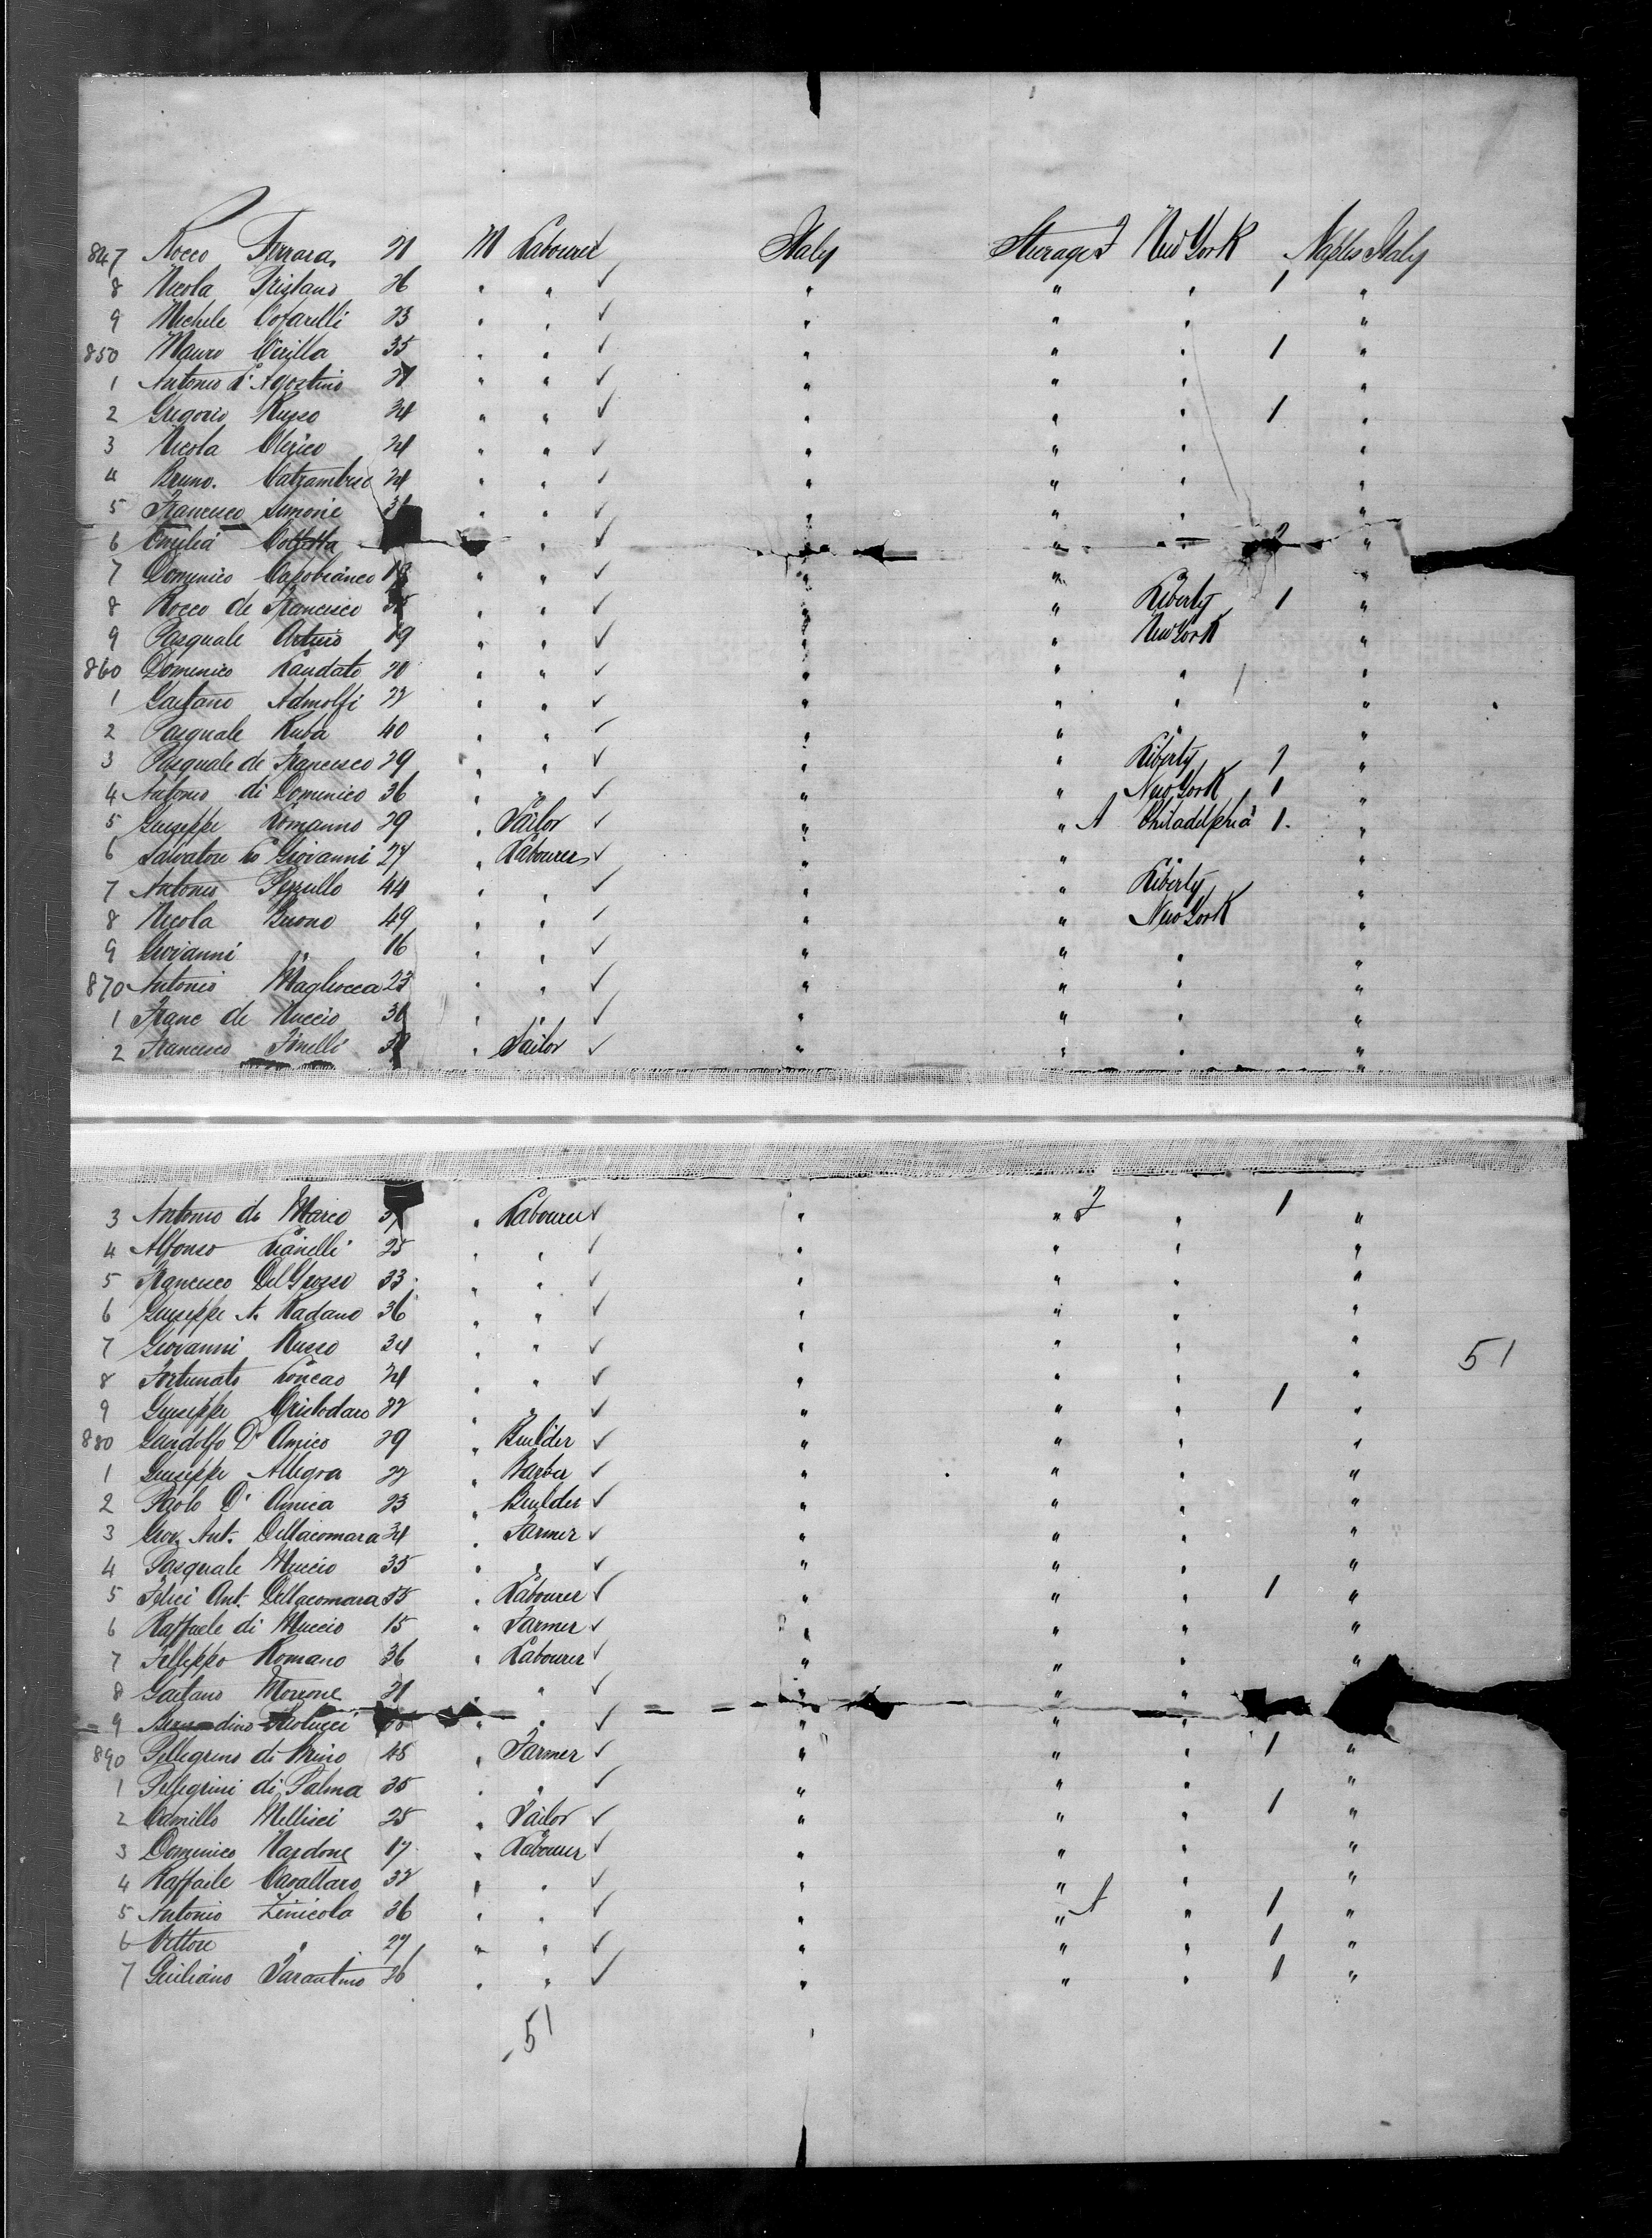 847 Rocco Ferrara 21 M Labourer Italy Steerage F New York Naples Italy
8 Nicola Tristano 26 " " ✓ " " " 1 "
9 Michele 23 " " ✓ " " " "
850 Mauro Cirilla 35 " " ✓ " " " 1 "
1 Antonio D'Agostino " " ✓ " " " "
2 Gregorio Russo 24 " " ✓ " " " 1 "
3 Nicola Clerico 24 " " ✓ " " " "
4 Bruno. 24 " " ✓ " " " "
5 Francesco Simone " " ✓ " " " "
6 Emilia " ✓ " " " "
7 Domenico Capobianco " " ✓ " " "
8 Rocco de Francesco " " ✓ " " Liberty 1 "
9 Pasquale 19 " " ✓ " " New York "
860 Domenico Laudato 20 " " ✓ " " " "
1 Gaetano Admolfi 22 " " ✓ " " " "
2 Pasquale Ruba 40 " " ✓ " " " "
3 Pasquale de Francesco 29 " " ✓ " " Liberty 1 "
4 Antonio di Domenico 36 " " ✓ " " New York 1 "
5 Giuseppe Romanno 29 " Tailor ✓ " " A Philadelphia 1. "
6 Salvatore Giovanni 27 " Labourer ✓ " " " "
7 Antonio Pezzullo 44 " " ✓ " " Liberty "
8 Nicola Buono 49 " " ✓ " " New York "
9 Giovanni " 16 " " ✓ " " " "
870 Antonio Magliocca 23 " " ✓ " " " "
1 Franc de Nuccio " " ✓ " " " "
2 Francesco Finelli " Tailor ✓ " " " "
3 Antonio di Marco " Labourer ✓ " " F " 1 "
4 Alfonso Lianelli 25 " " ✓ " " " "
5 Francesco Del Grosso 33 " " ✓ " " " "
6 Giuseppe A. Radano 36 " " ✓ " " " "
7 Giovanni Russo 34 " " ✓ " " " " 51
8 Fortunato Loncao 24 " " ✓ " " " "
9 Giuseppe Cristodaro 22 " " ✓ " " " 1 "
880 Gandolfo D'Amico 29 " Builder ✓ " " " "
1 Giuseppe Allegra 22 " Barber ✓ " " " "
2 Paolo D'Amica 23 " Builder ✓ " " " "
3 Giov. Ant. Dellacomara 24 " Farmer ✓ " " " "
4 Pasquale Muccio 35 " " ✓ " " " "
5 Felici Ant. Dellacomara 55 " Labourer ✓ " " " 1 "
6 Raffaele di Muccio 15 " Farmer ✓ " " " "
7 Fellippo Romano 36 " Labourer ✓ " " " "
8 Gaetano Morrone 21 " " ✓ " " "
9 Bernardino Paolucci " " ✓ " " "
890 Pellegrino di Prino 48 " Farmer ✓ " " " 1 "
1 Pellegrini di Palma 35 " " ✓ " " " "
2 Camillo Mellisci 25 " Tailor ✓ " " " 1 "
3 Domenico Nardone 17 " Labourer ✓ " " " "
4 Raffaile Cavallaro 32 " " ✓ " " " "
5 Antonio Zinicola 36 " " ✓ " " A " 1 "
6 Vittore " 27 " " ✓ " " " 1 "
7 Giuliano Tarantino 26 " " ✓ " " " 1 "
51